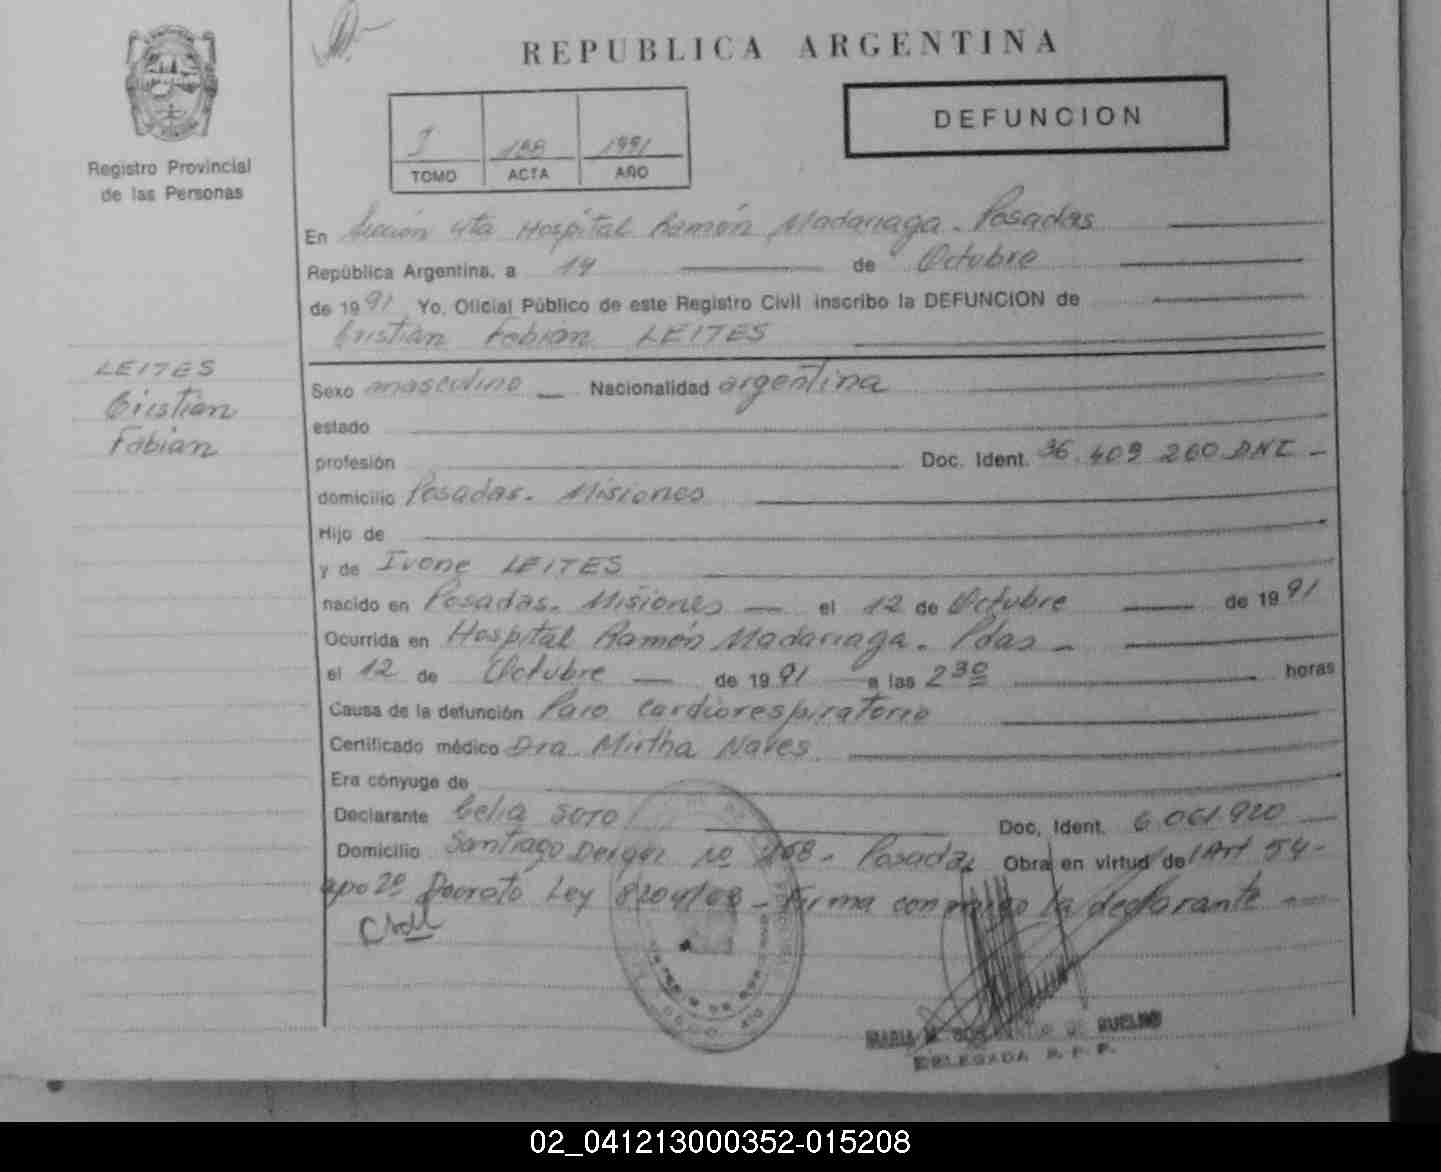 REPUBLICA ARGENTINA
DEFUNCION
I 188 1991
TOMO ACTA AÑO
Registro Provincial
de las Personas
En Sección 4ta Hospital Ramón Madariaga - Posadas
República Argentina, a 14 de Octubre
de 1991 Yo, Oficial Público de este Registro Civil inscribo la DEFUNCION de
Cristian Fabian LEITES
LEITES
Cristian
Fabian
Sexo masculino Nacionalidad argentina
estado
profesión Doc. Ident. 36.409.260 DNI -
domicilio Posadas - Misiones
Hijo de
y de Ivone LEITES
nacido en Posadas - Misiones - el 12 de Octubre de 1991
Ocurrida en Hospital Ramón Madariaga - Pdas -
el 12 de Octubre de 1991 a las 2 30 horas
Causa de la defunción Paro cardiorespiratorio
Certificado médico Dra Mirtha Nares
Era cónyuge de
Declarante Celia SOTO Doc. Ident. 6.061.920
Domicilio Santiago Nº - Posadas Obra en virtud del Art 54 -
apo 2º Decreto Ley 8204/68 - Firma conmigo la declarante
DELEGADA R. P. P.
02_041213000352-015208